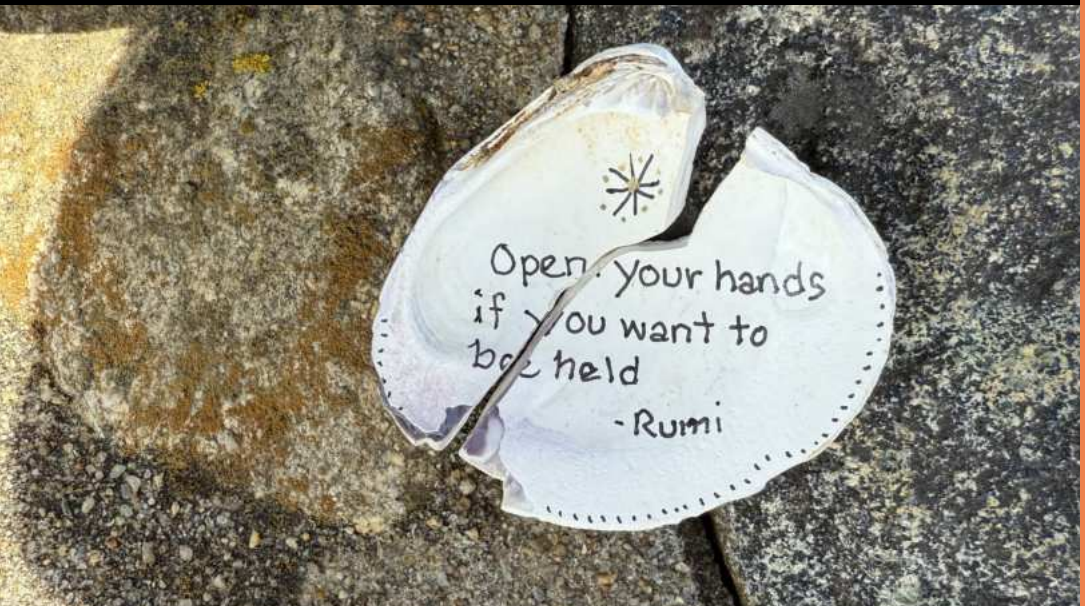 Open your hands
if you want to
be held
-Rumi